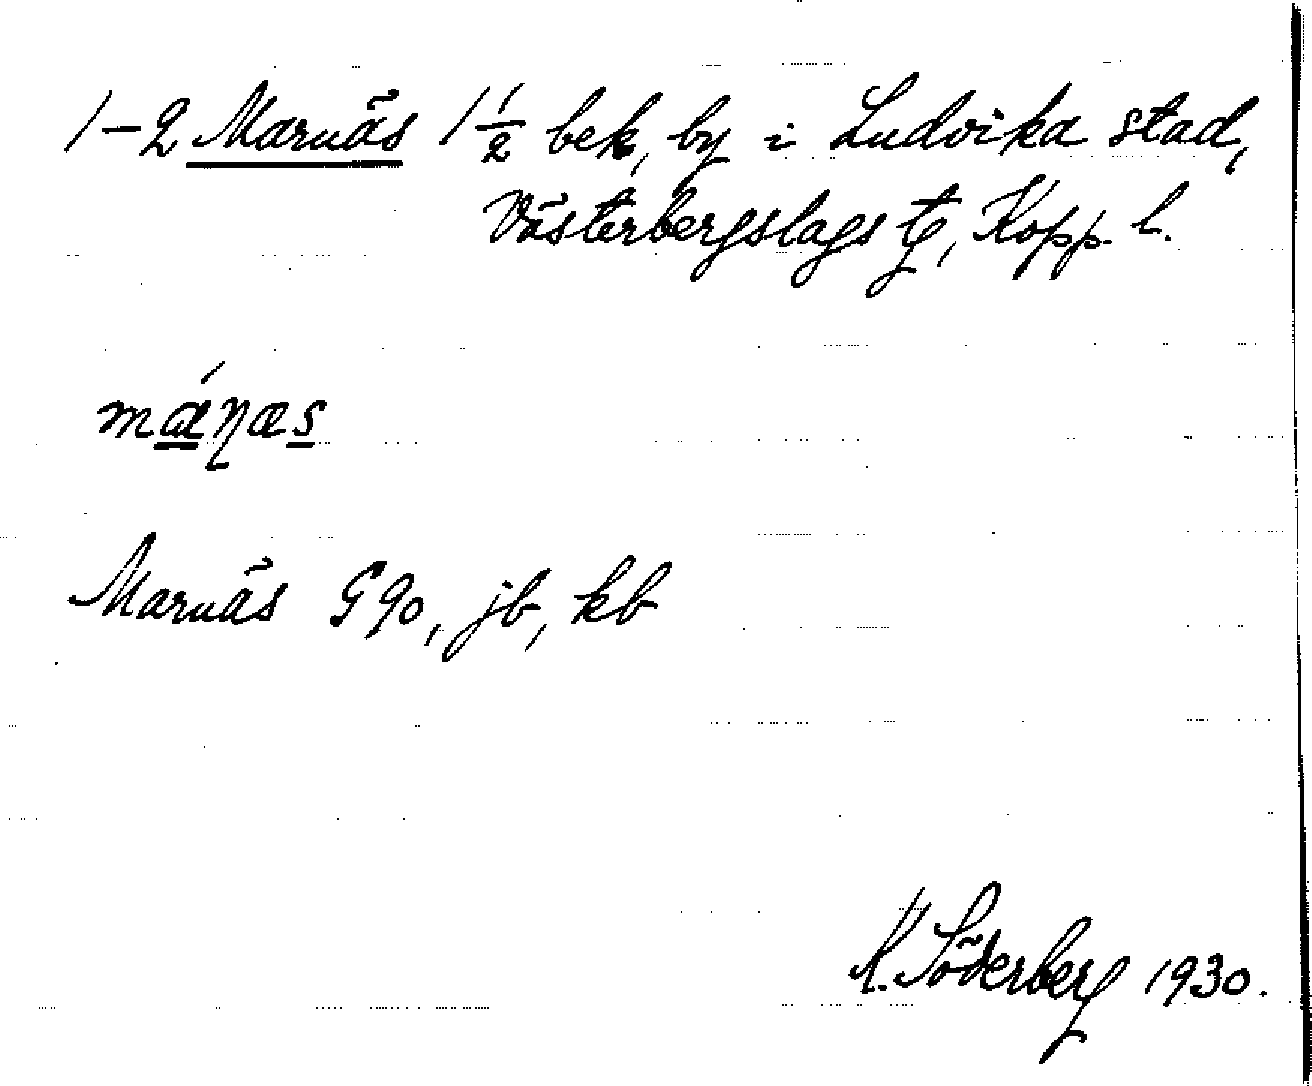 1-2 Marnäs 1 1/2 bek, by i Ludvika stad,
Västerbergslags tg, Kopp. l.
máɳæs
Marnäs G90, jb, kb
K. Söderberg 1930.